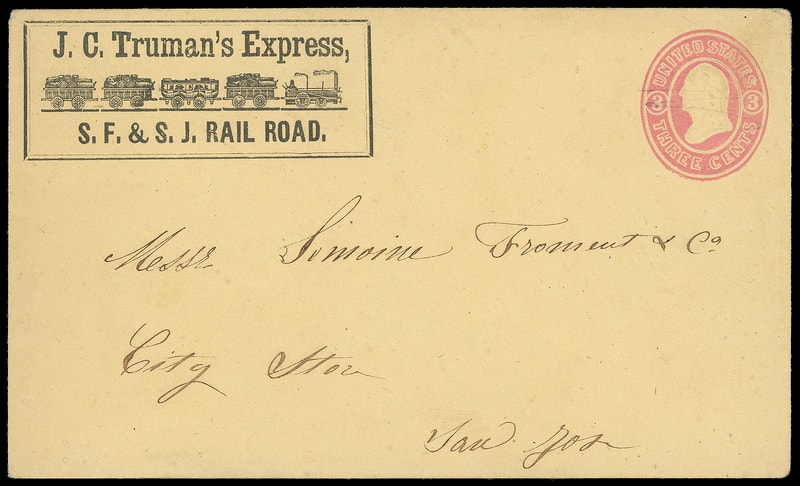 J. C. Truman's Express,
S. F. & S. J. RAIL ROAD.
UNITED STATES
3 3
THREE CENTS
Messr Simoine Froment & Co
City Store
San Jose